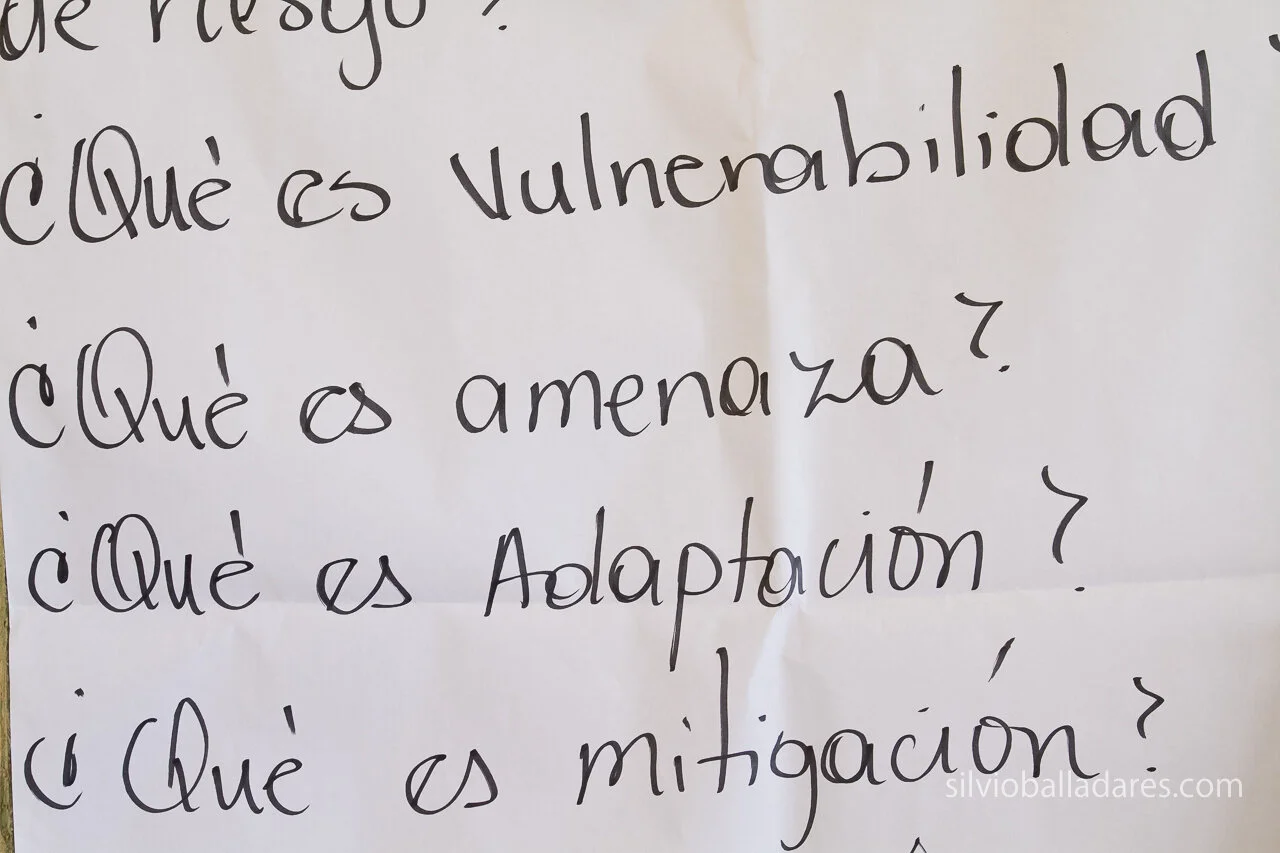 de riesgo?
¿Qué es Vulnerabilidad
¿Qué es amenaza?
¿Qué es Adaptación?
¿Qué es mitigación?
silvioballadares.com